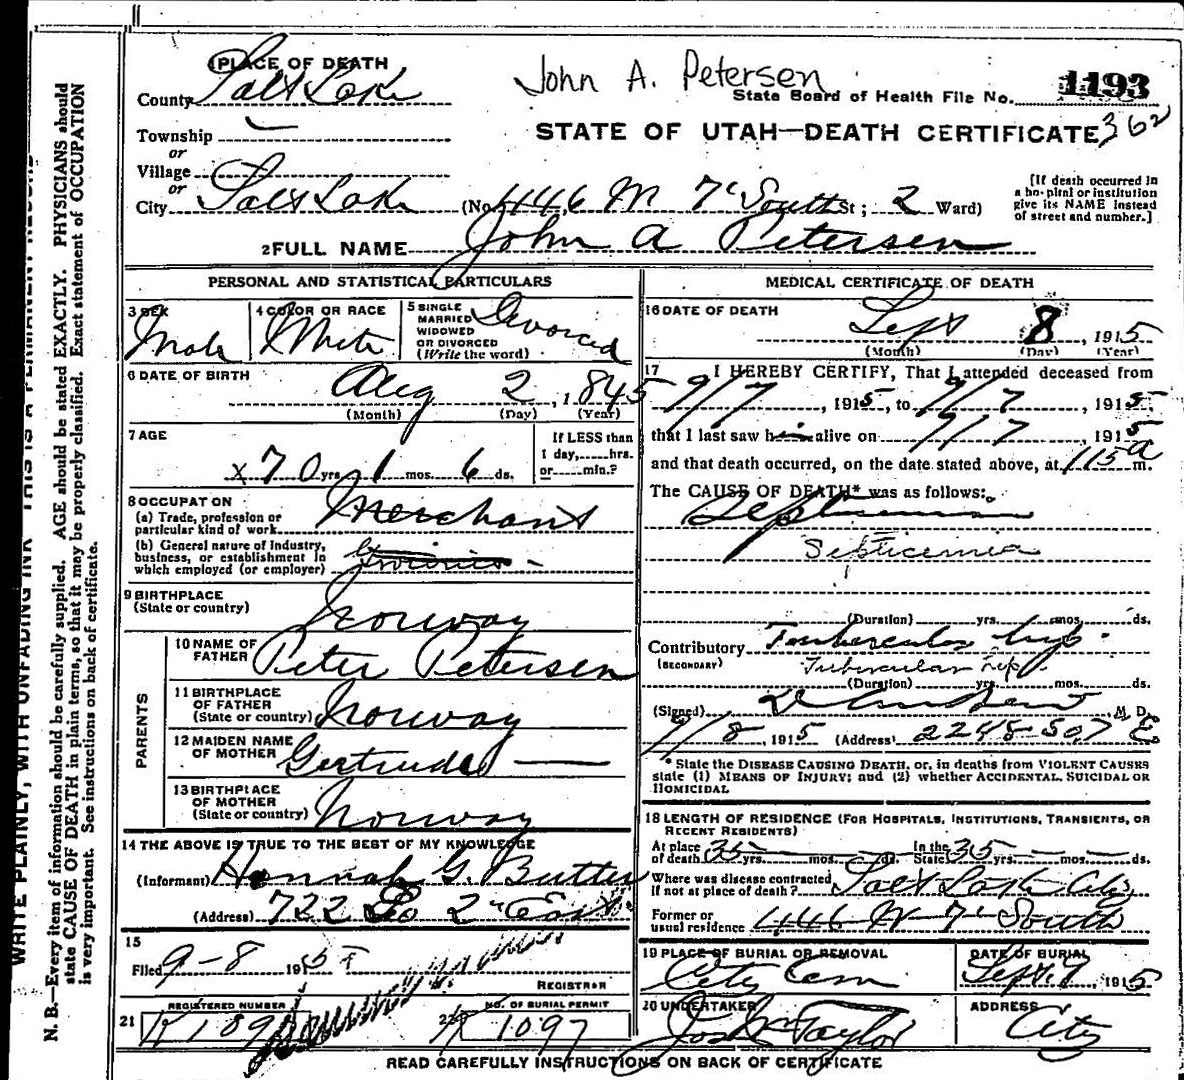 WRITE PLAINLY, WITH UNFADING INK—THIS IS A PERMANENT RECORD
N. B.—Every item of information should be carefully supplied. AGE should be stated EXACTLY. PHYSICIANS should
state CAUSE OF DEATH in plain terms, so that it may be properly classified. Exact statement of OCCUPATION
is very important. See instructions on back of certificate.
PLACE OF DEATH
John A. Petersen
County Salt Lake
State Board of Health File No. 1193
Township
STATE OF UTAH—DEATH CERTIFICATE 362
or
Village
or
City Salt Lake (No. 446 W 7" South St; 2 Ward)
[If death occurred in
a hospital or institution
give its NAME instead
of street and number.]
2 FULL NAME John A Petersen
PERSONAL AND STATISTICAL PARTICULARS
3 SEX Male
4 COLOR OR RACE White
5 SINGLE
MARRIED
WIDOWED
OR DIVORCED
(Write the word) Divorced
6 DATE OF BIRTH Aug 2, 1845
(Month) (Day) (Year)
7 AGE
x 70 yrs 1 mos. 6 ds.
If LESS than
1 day, hrs.
or min.?
8 OCCUPATION
(a) Trade, profession or
particular kind of work Merchant
(b) General nature of industry,
business, or establishment in
which employed (or employer)
9 BIRTHPLACE
(State or country) Norway
PARENTS
10 NAME OF
FATHER Peter Petersen
11 BIRTHPLACE
OF FATHER
(State or country) Norway
12 MAIDEN NAME
OF MOTHER Gertrude —
13 BIRTHPLACE
OF MOTHER
(State or country) Norway
14 THE ABOVE IS TRUE TO THE BEST OF MY KNOWLEDGE
(Informant) Hannah G. Butler
(Address) 722 So 2" East
15
Filed 9-8 1915
REGISTRAR
REGISTERED NUMBER
21 K 189
NO. OF BURIAL PERMIT
22 K 1097
MEDICAL CERTIFICATE OF DEATH
16 DATE OF DEATH
Sept 8, 1915
(Month) (Day) (Year)
17 I HEREBY CERTIFY, That I attended deceased from
9/7, 1915, to 9/7, 1915,
that I last saw him alive on 9/7 1915
and that death occurred, on the date stated above, at 115 a m.
The CAUSE OF DEATH* was as follows:
Septicemia
Septicemia
(Duration) yrs. mos. ds.
Contributory Tubercular hip.
(SECONDARY) Tubercular hip
(Duration) yrs. mos. ds.
(Signed) M. D.
9/8, 1915 (Address) 2248 So, 7 E
*State the DISEASE CAUSING DEATH, or, in deaths from VIOLENT CAUSES
state (1) MEANS OF INJURY; and (2) whether ACCIDENTAL, SUICIDAL OR
HOMICIDAL
18 LENGTH OF RESIDENCE (FOR HOSPITALS, INSTITUTIONS, TRANSIENTS, OR
RECENT RESIDENTS)
At place
of death 35 yrs. mos. ds. In the
State 35 yrs. mos. ds.
Where was disease contracted
if not at place of death? Salt Lake City
Former or
usual residence 446 W 7" South
19 PLACE OF BURIAL OR REMOVAL
City Cem
DATE OF BURIAL
Sept. 9 1915
20 UNDERTAKER
Jos Wm Taylor
ADDRESS
City
READ CAREFULLY INSTRUCTIONS ON BACK OF CERTIFICATE